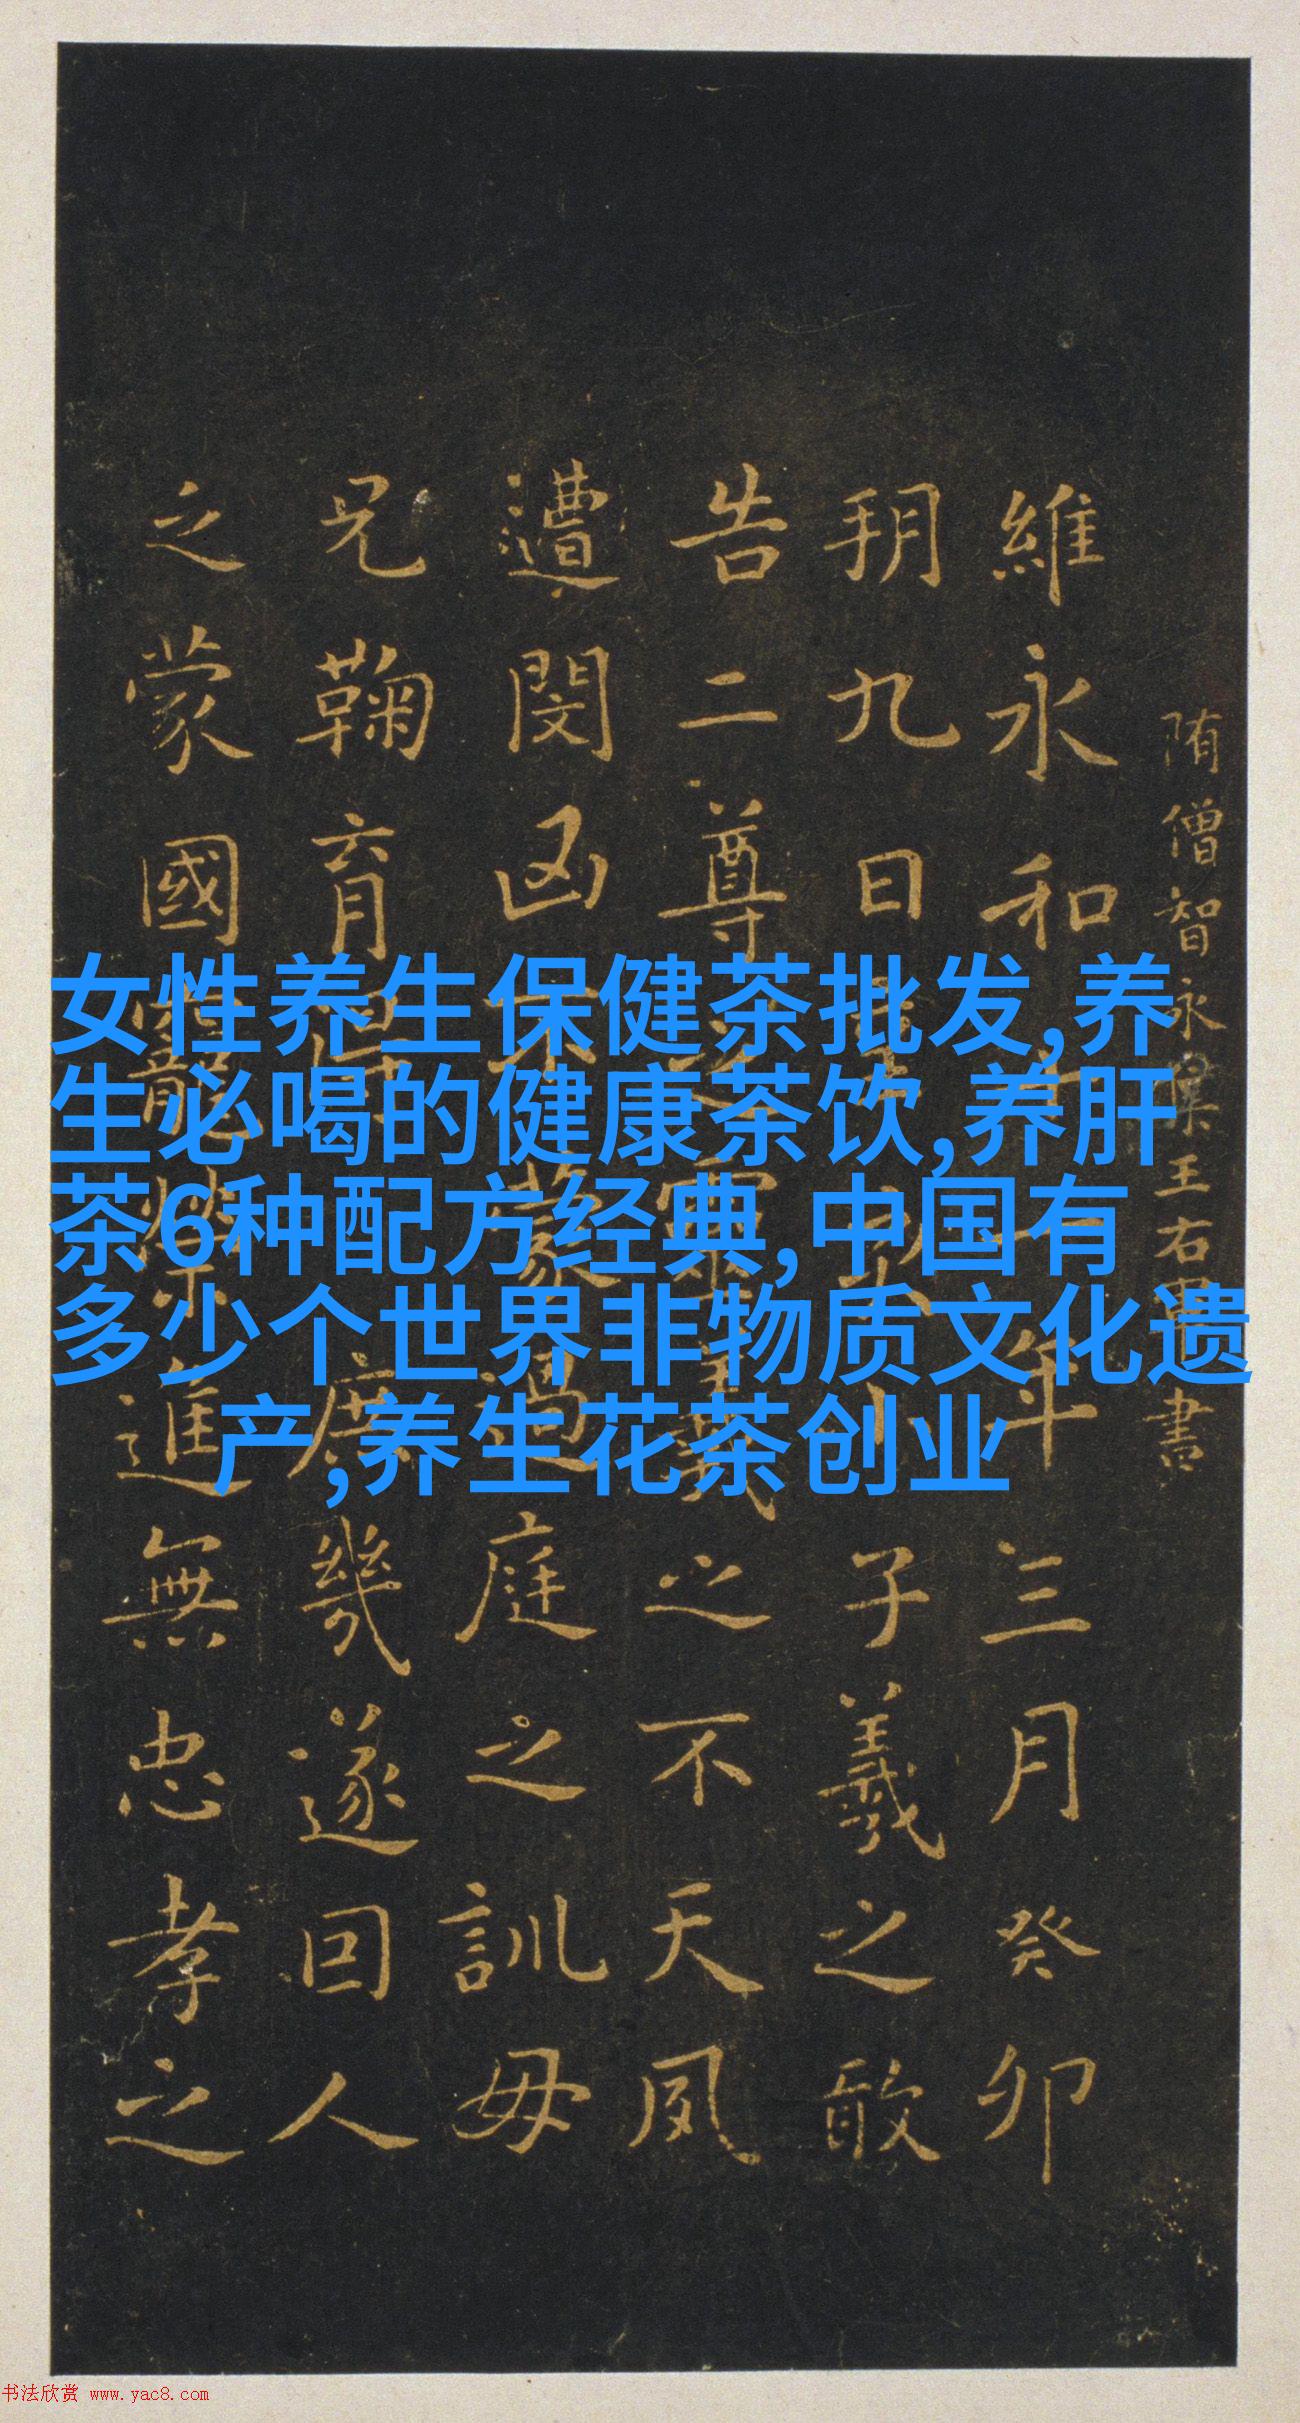 隋僧智永王右書
維永和年三月癸卯
朔九日子羲之敢
告二尊之靈羲之不天夙
遭閔凶不蒙過庭之訓毋
兄鞠育庶幾遂因人
之蒙國寵榮進無忠孝之
女性养生保健茶批发,养
生必喝的健康茶饮,养肝
茶6种配方经典,中国有
多少个世界非物质文化遗
产,养生花茶创业
书法欣赏 www.yac8.com